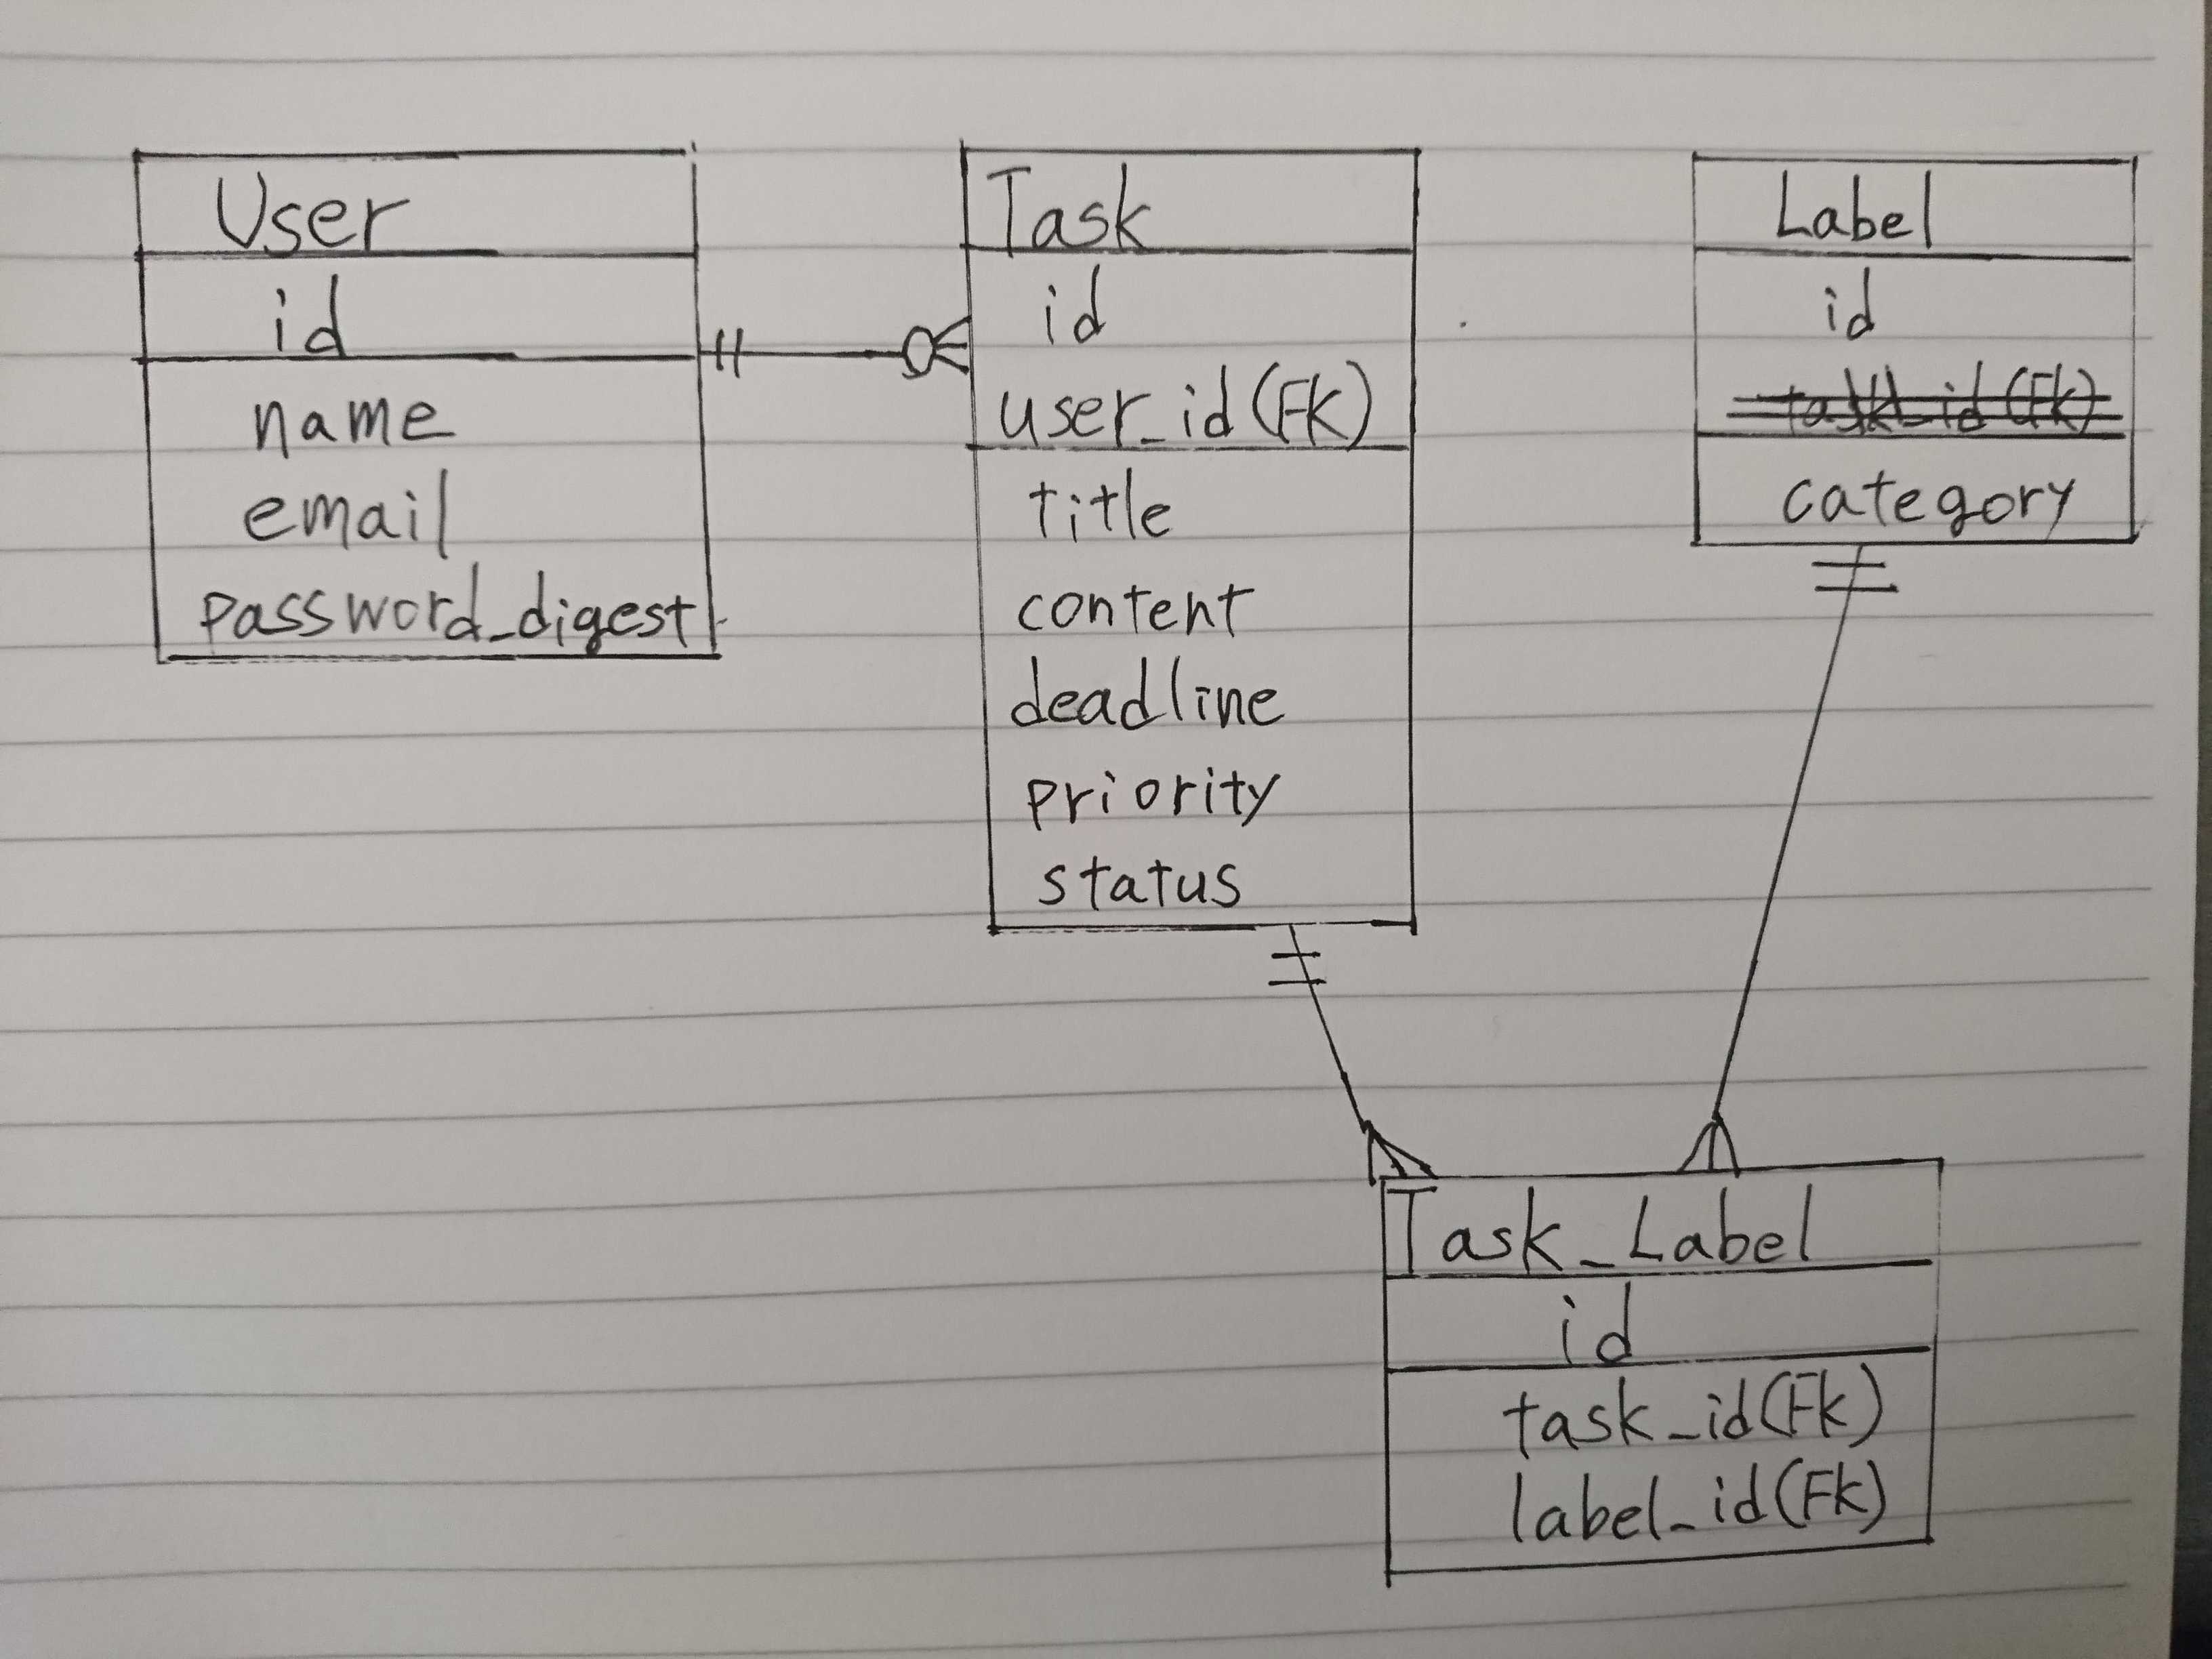 User
id
name
email
password_digest
Task
id
user_id(FK)
title
content
deadline
priority
status
Label
id
task_id(FK)
category
Task_Label
id
task_id(Fk)
label_id(Fk)